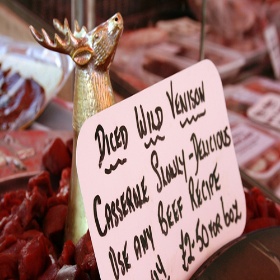 DICED WILD VENISON
CASSEROLE SLOWLY-DELICIOUS
USE ANY BEEF RECIPE
£2-50 FOR BOX